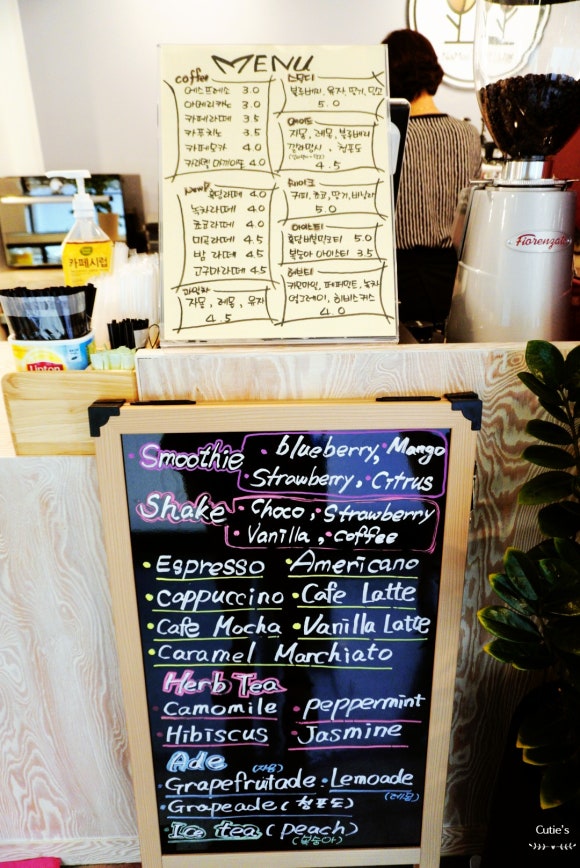 MENU
coffee
에스프레소 3.0
아메리카노 3.0
카페라떼 3.5
카푸치노 3.5
카페모카 4.0
카라멜 마끼아또 4.0
홍당라떼 4.0
녹차라떼 4.0
초코라떼 4.0
미곡라떼 4.5
밤 라떼 4.5
고구마라떼 4.5
과일차
자몽, 레몬, 유자
4.5
스무디
블루베리, 유자, 딸기, 망고
5.0
에이드
자몽, 레몬, 블루베리
청포도
4.5
쉐이크
커피, 초코, 딸기, 바닐라
5.0
아이스티
홍당버블밀크티 5.0
복숭아 아이스티 3.5
허브티
카모마일, 페퍼민트, 녹차
얼그레이, 히비스커스
4.0
Fiorenzato
카페시럽
Lipton
Smoothie
blueberry, Mango
Strawberry, Citrus
Shake
Choco, Strawberry
Vanilla, coffee
Espresso Americano
Coppuccino Cafe Latte
Cafe Mocha Vanilla Latte
Caramel Marchiato
Herb Tea
Camomile peppermint
Hibiscus Jasmine
Ade
(자몽)
Grapefruitade Lemoade
(레몬)
Grapeade (청포도)
Ice tea (peach)
(복숭아)
Cutie's